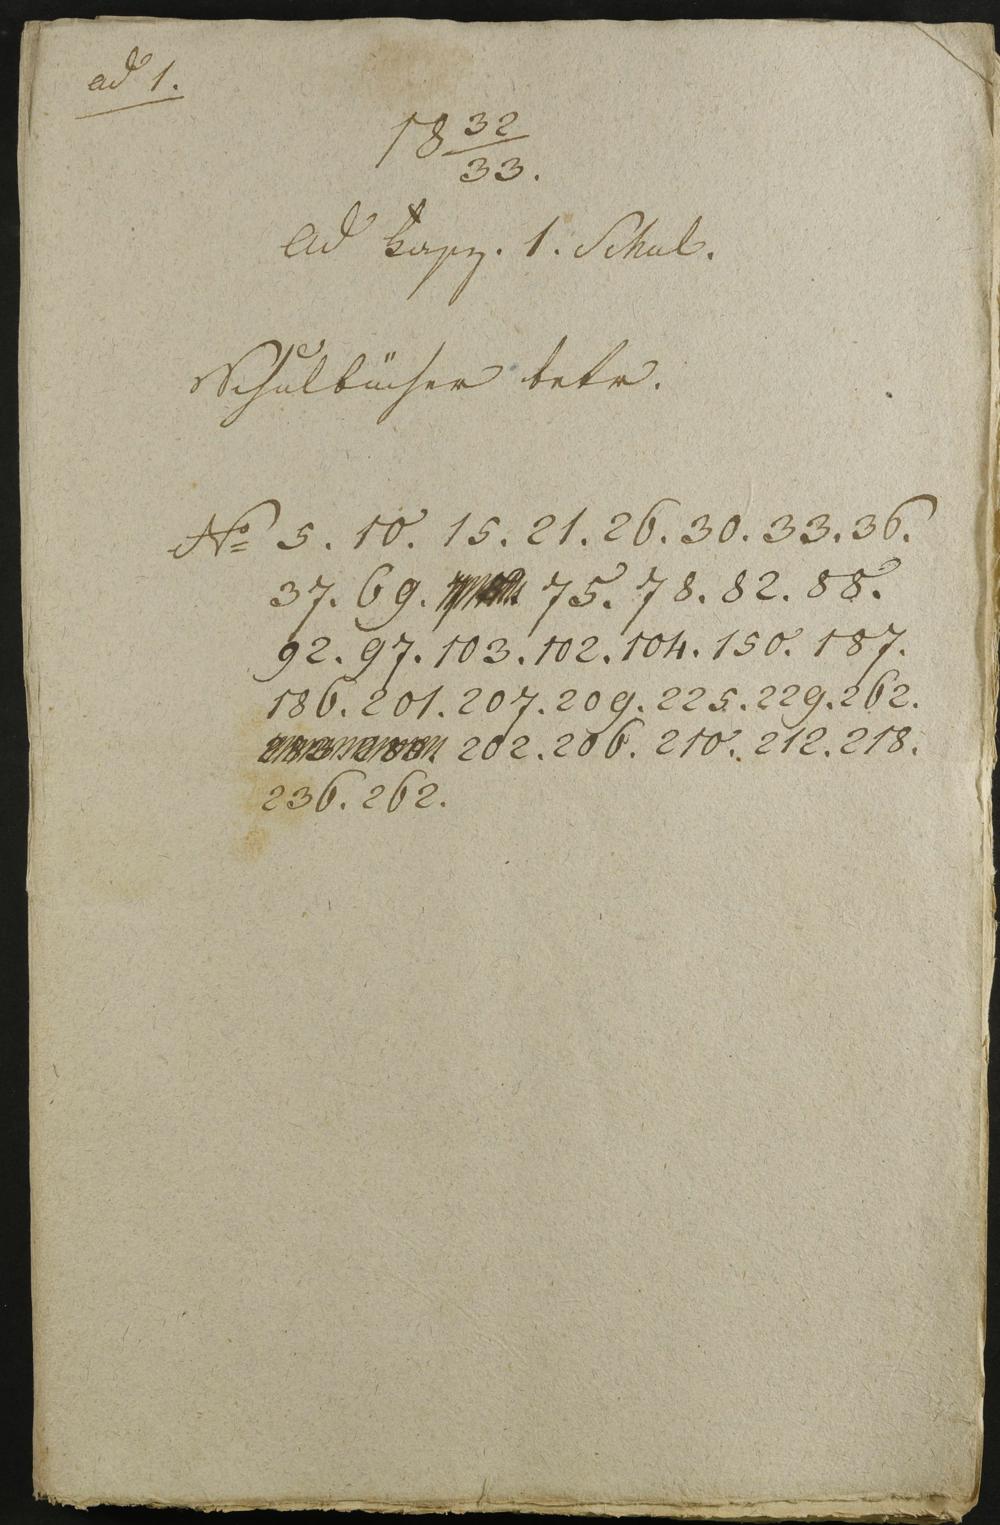 ad 1.
18 32/33.
Ad Kapz. 1. Schul.
Schulbücher betr.
No 5. 10. 15. 21. 26. 30. 33. 36.
37. 69. 75. 78. 82. 88.
92. 97. 103. 102. 104. 150. 187.
186. 201. 207. 209. 225. 229. 262.
202. 206. 210. 212. 218.
236. 262.